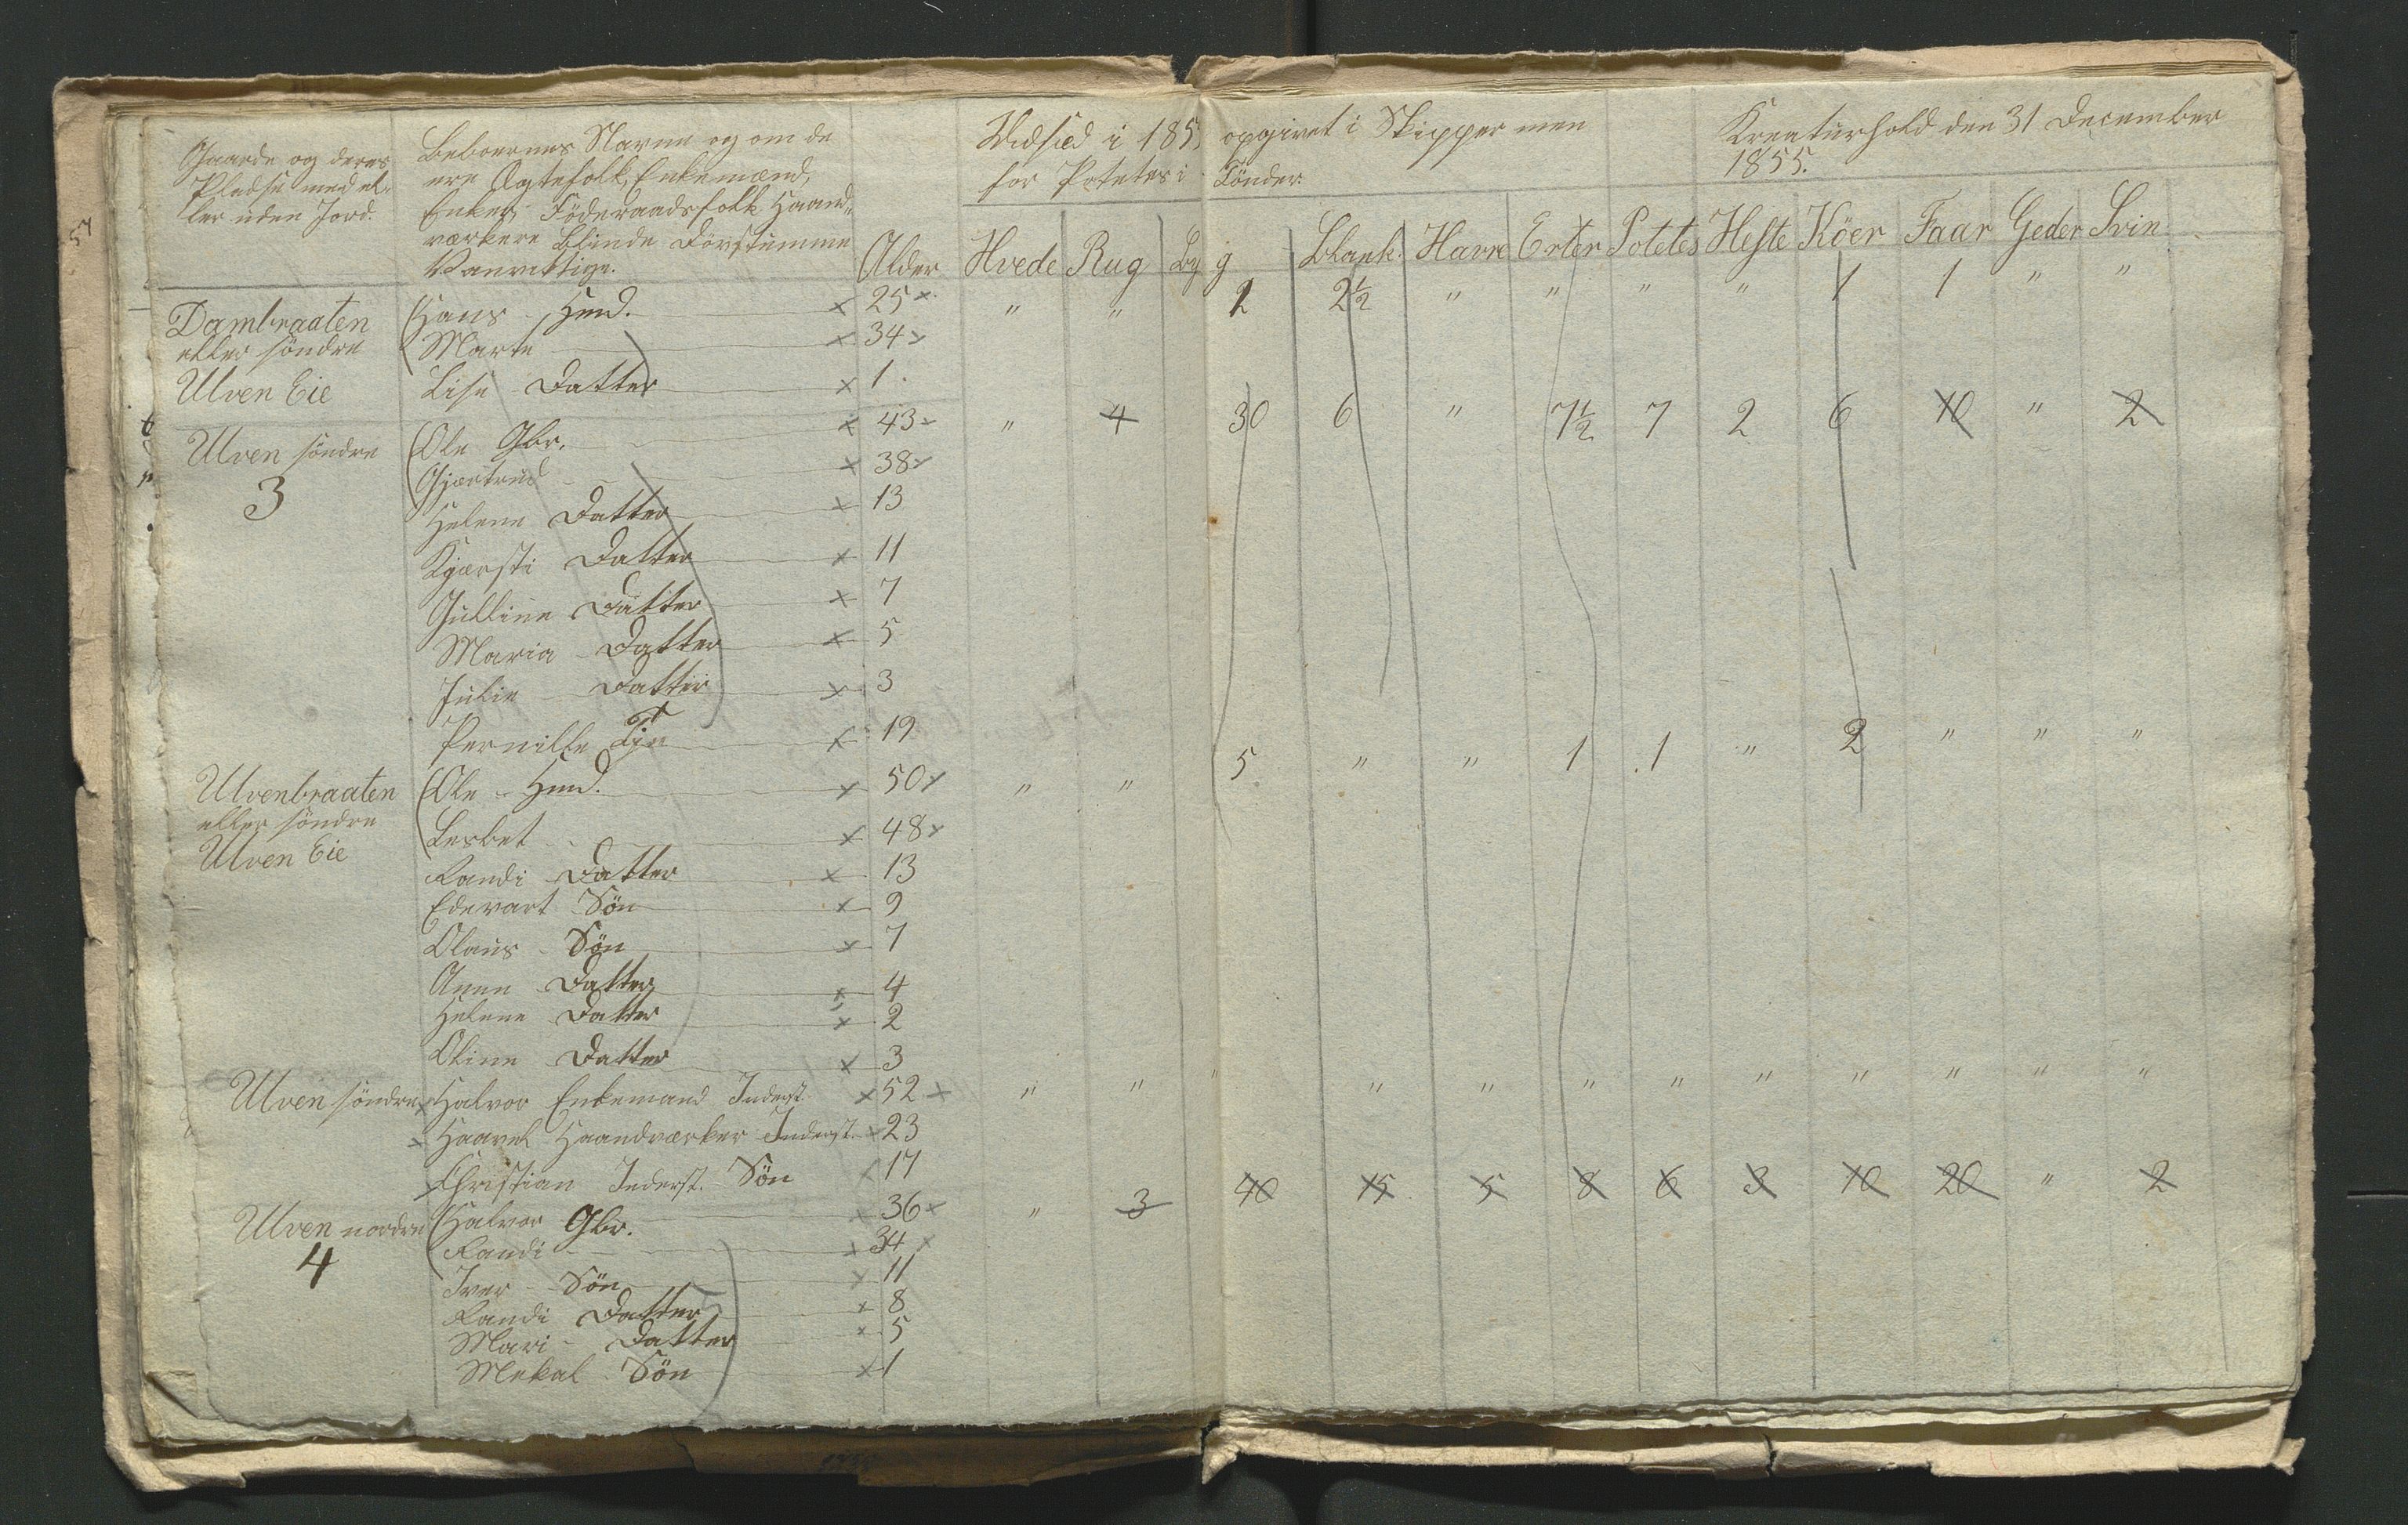 Gaarde og deres
Pladse med el-
ler uden Jord.
Beboernes Navne og om de
ere Ægtefolk, Enkemænd,
Enker, Föderaadsfolk Haand-
værkere Blinde Dövstumme
Vanvittige.
Alder
Udsæd i 185 opgivet i Skipper men
for Potetes i Tönder.
Kreaturhold den 31 December
1855.
Hvede Rug Byg Blank. Havre Erter Potetes Heste Köer Faar Geder Svin
Dambraaten Hans - Hmd. x 25 x " " 2 2½ " " " " 1 1 " "
eller söndre Marte x 34 x
Ulven Eie Lise Datter x 1
Ulven söndre Ole Gbr. x 43 x " 4 30 6 " 7½ 7 2 6 10 " 2
3 Gjærtrud x 38 x
Helene Datter x 13
Kjærsti Datter x 11
Julline Datter x 7
Maria - Datter x 5
Julie - Datter x 3
Pernille Tje x 19
Ulvenbraaten Ole - Hmd. x 50 x " " 5 " " 1 1 " 2 " " "
eller söndre Lesbet x 48 x
Ulven Eie Randi Datter x 13
Edevart Sön x 9
Olaus - Sön x 7
Anne Datter x 4
Helene Datter x 2
Oline Datter x 3
Ulven söndre x Halvor Enkemand Inderst. x 52 x " " " " " " " " " " " "
x Haavel Haandværker Inderst. x 23
x Christian Inderst. Sön x 17
Ulven nordre Halvor Gbr. x 36 x " 3 40 15 5 8 6 3 10 20 " 2
4 Randi x 34 x
Iver - Sön x 11
Randi Datter x 8
Mari - Datter x 5
Mekal Sön x 1